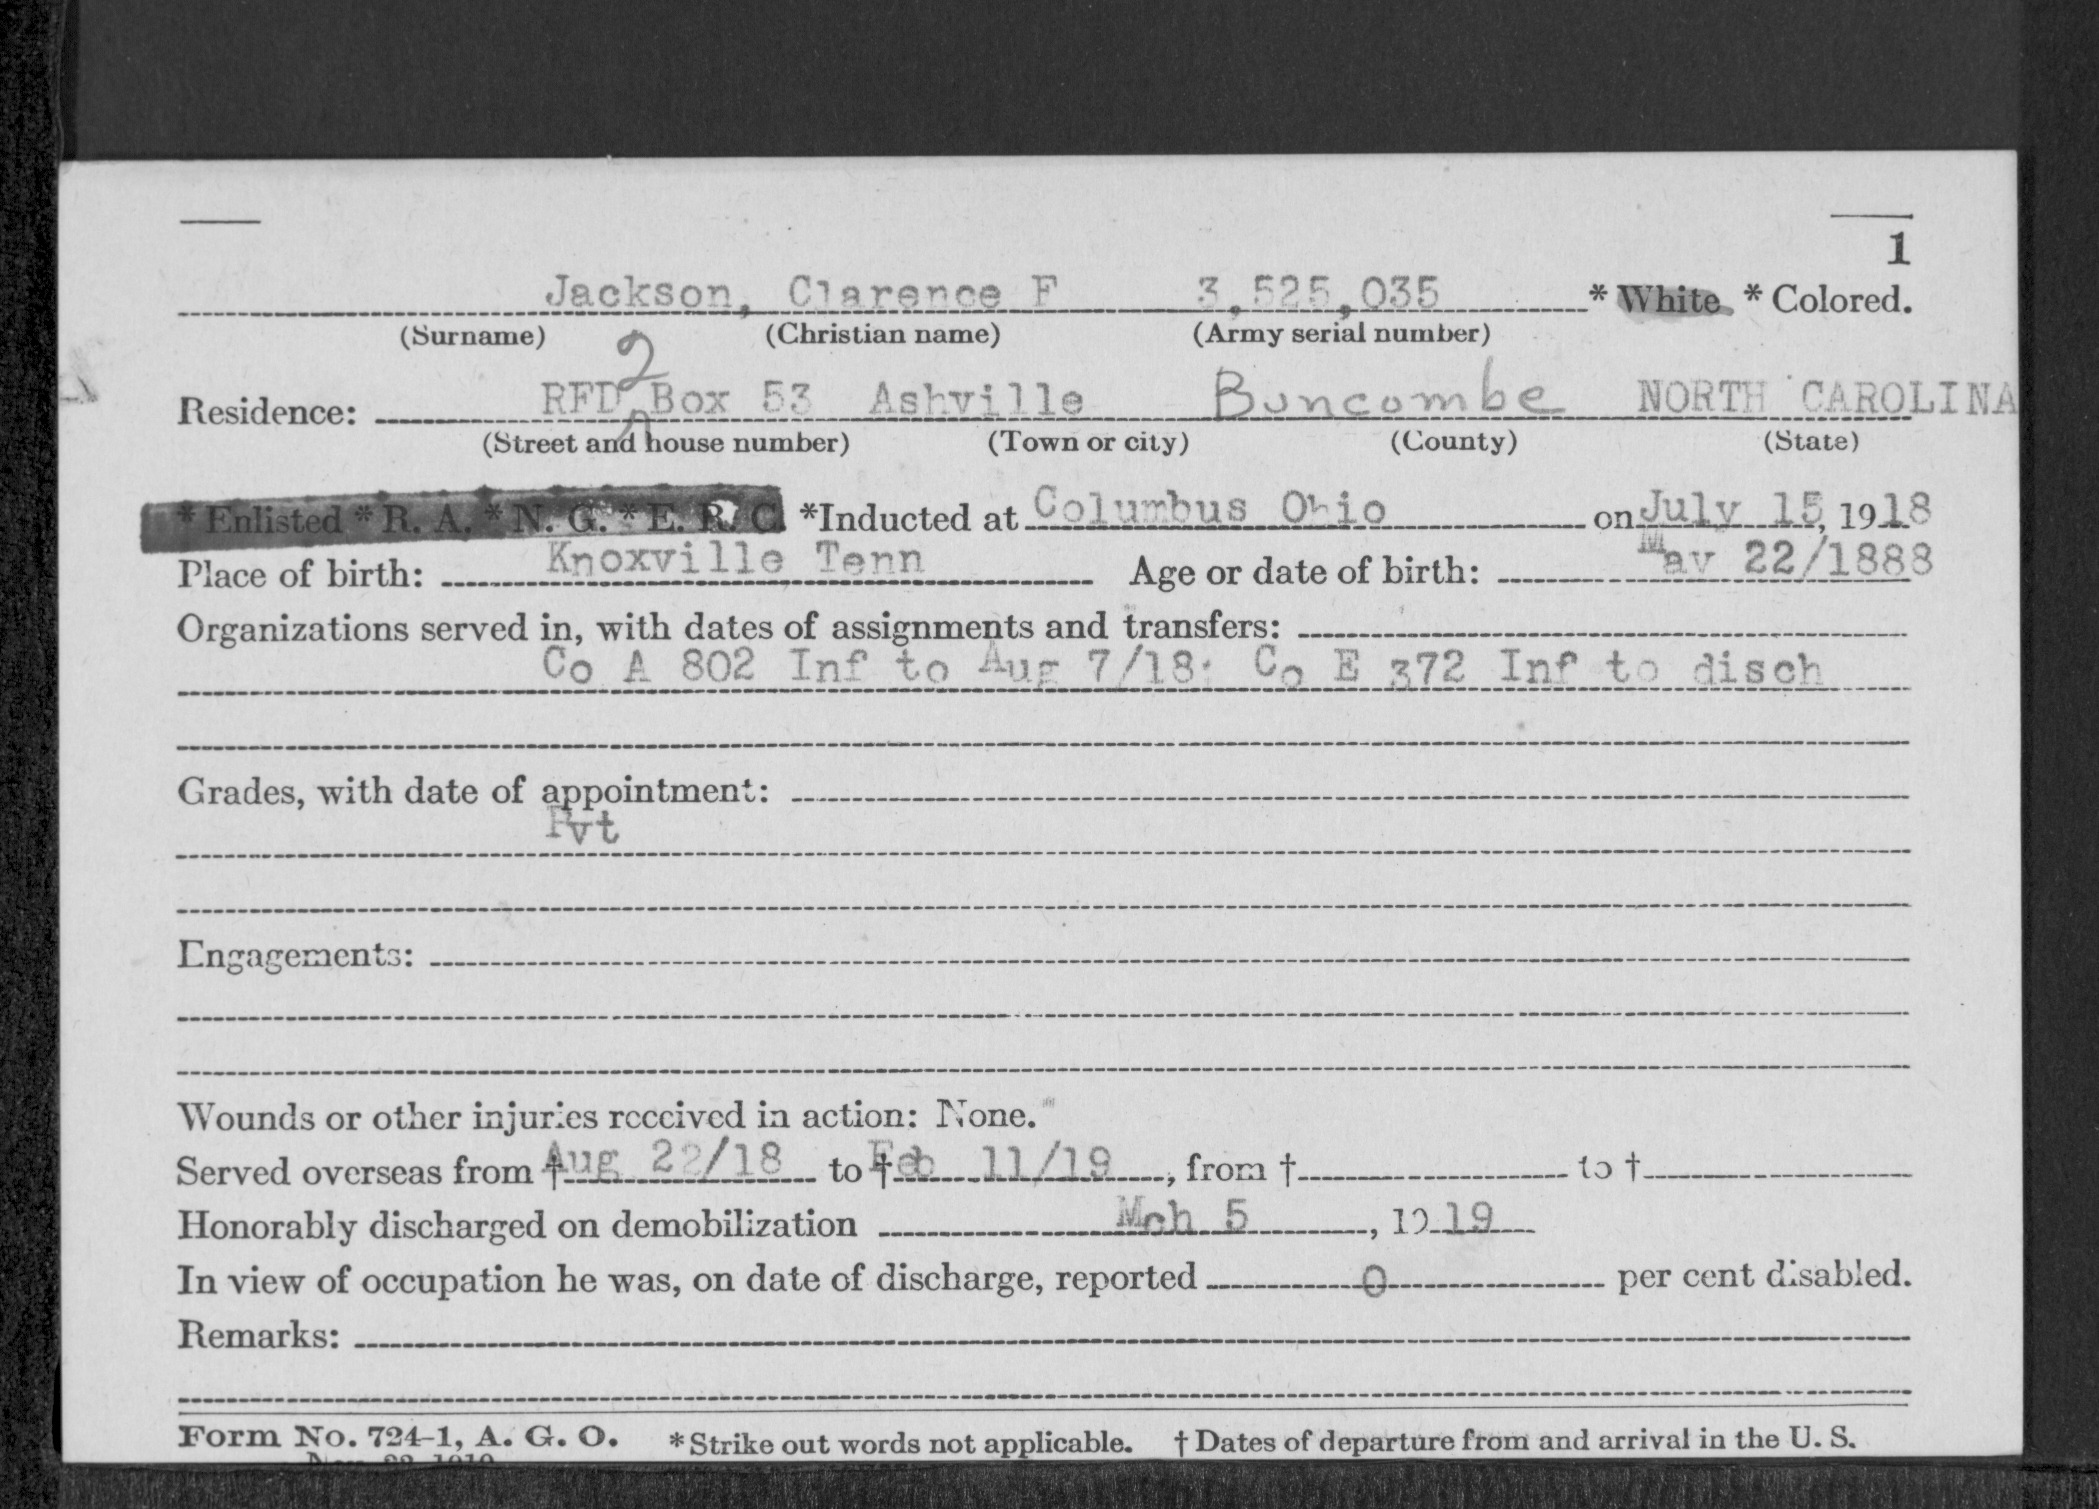 1
Jackson, Clarence F 3,525,035 * White * Colored.
(Surname) (Christian name) (Army serial number)
Residence: RFD 2 Box 53 Ashville Buncombe NORTH CAROLINA
(Street and house number) (Town or city) (County) (State)
* Enlisted * R. A. * N. G. * E. R. C. *Inducted at Columbus Ohio on July 15, 1918
Place of birth: Knoxville Tenn Age or date of birth: May 22/1888
Organizations served in, with dates of assignments and transfers:
Co A 802 Inf to Aug 7/18; Co E 372 Inf to disch
Grades, with date of appointment:
Pvt
Engagements:
Wounds or other injuries received in action: None.
Served overseas from † Aug 22/18 to † Feb 11/19, from † to †
Honorably discharged on demobilization Mch 5, 1919
In view of occupation he was, on date of discharge, reported 0 per cent disabled.
Remarks:
Form No. 724-1, A. G. O. * Strike out words not applicable. † Dates of departure from and arrival in the U. S.